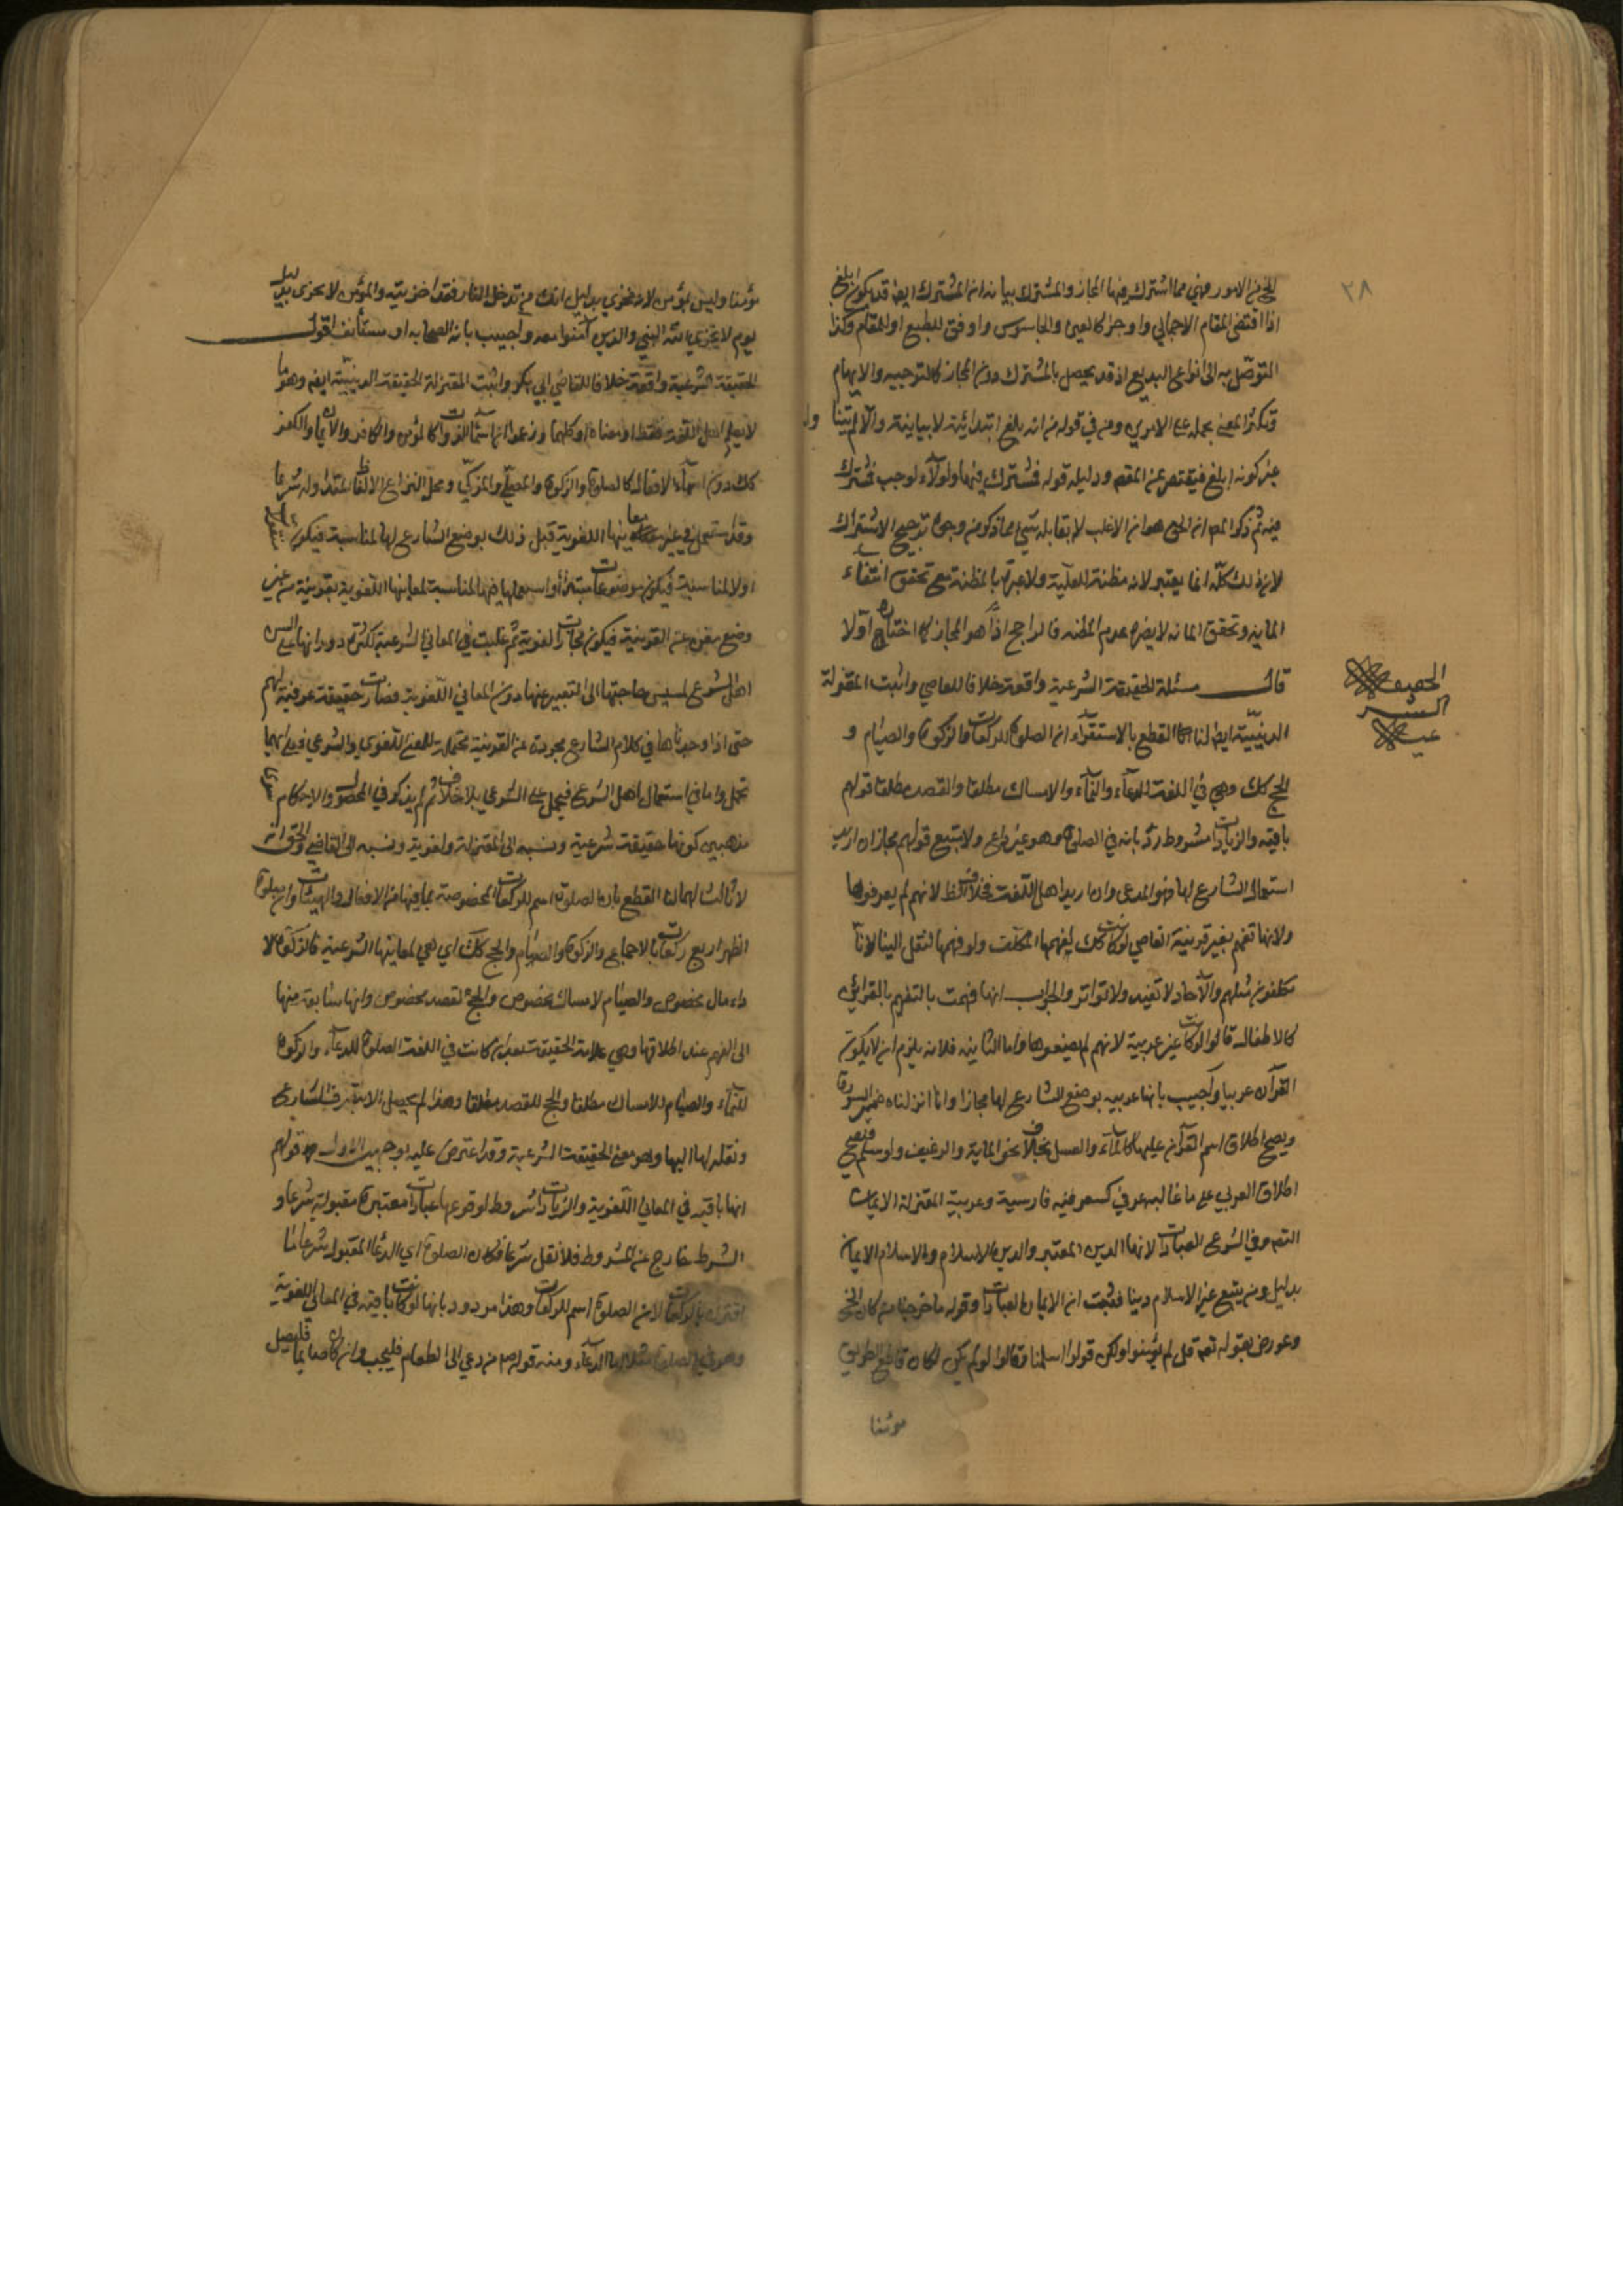 ٢٨
من الامور فهي مما اشترك فيها المجاز والمشترك بيانه ان المشترك ايضا قد يكون ابلغ
اذا اقتضى المقام الاجمالي واوجز كالعين والجاسوس واوفق للطبع او للمقام وكذا
التوصل به الى انواع البديع اذ قد يحصل بالمشترك دون المجاز كالتوجيه والايهام
عن كونه ابلغ فيقتصر عن المقصد ودليله قوله فمشترك فيها ولولاه لوجب فمشترك
فيه ثم ذكر المصم ان الحق هو ان الاغلب لا يقابله شيء مما ذكر من وجوه ترجيح الاشتراك
لان ذلك كله انما يعتبر لانه مظنة الغلبة ولا عبرة بالمظنة مع تحقق انتفاء
قال مسئلة الحقيقة الشرعية واقعة خلافا للقاضي واثبت المعتزلة
الحقيقة
الشر
عية
الدينية ايضا لنا القطع بالاستقراء ان الصلوة للركعات والزكوة والصيام و
الحج كك وهي في اللغة الدعاء والنماء والامساك مطلقا والقصد مطلقا قولهم
باقية والزيادات مشروط رد بانه في الصلوة وهو غير داع ولا متبع قولهم مجاز ان اريد
استعمال الشارع لها فهو المدعى وان اريد اهل اللغة فخلاف الظ لانهم لم يعرفوها
ولانها تفهم بغير قرينة القاضي لو كانت كك لفهمها المكلف ولو فهمها لنقل الينا لانا
مكلفون مثلهم والآحاد لا تفيد ولا تواتر والجواب انها فهمت بالتفهيم بالقرائن
كالاطفال قالوا لو كانت غير عربية لانهم لم يضعوها واما الثانية فلانه يلزم ان لا يكون
القرآن عربيا واجيب بانها عربية بوضع الشارع لها مجازا وانا انزلناه ضمير السورة
ويصح اطلاق اسم القرآن عليها كالماء والعسل بخلاف نحو المائة والرغيف ولو سلم فيصح
اطلاق العربي على ما غالبه عربي كشعر فيه فارسية وعربية المعتزلة الايمان
التص وفي الشرع العبادات لانها الدين المعتبر والدين الاسلام والاسلام الايمان
بدليل ومن يبتغ غير الاسلام دينا فثبت ان الايمان العبادات وقوله فاخرجنا من كان الخ
وعورض بقوله تعم قل لم تؤمنوا ولكن قولوا اسلمنا وقالوا لو لم يكن لكان قاطع الطريق
مؤمنا
مؤمنا وليس بمؤمن لانه مخزي بدليل انك من تدخل النار فقد اخزيته والمؤمن لا يخزى بدليل
يوم لا يخزي الله النبي والذين آمنوا معه واجيب بانه الصحابه او مستأنف اقول
الحقيقة الشرعية واقعة خلافا للقاضي ابي بكر واثبت المعتزلة الحقيقة الدينية ايضا وهو ما
لا يعلم اهل اللغة لفظه او معناه او كليهما وزعموا انها اسماء الذوات كالمؤمن والكافر والايمان والكفر
كك دون اسماء الافعال كالصلوة والزكوة والمصلي والمزكي ومحل النزاع الالفاظ المتداولة شرعا
وقد استعمل في غير معانيها اللغوية قبل ذلك بوضع الشارع لها لمناسبة فيكون منقولا
اولا لمناسبة فيكون موضوعات مبتدأة او استعملها فيها لمناسبة لمعانيها اللغوية بقرينة من غير
وضع مغن عن القرينة فيكون مجازات لغوية ثم غلبت في المعاني الشرعية لكثرة دورانها على السن
اهل الشرع لمسيس حاجتها الى التعبير عنها دون المعاني اللغوية فصارت حقيقة عرفية لهم
حتى اذا وجدناها في كلام الشارع مجردة عن القرينة محتملة للمعنى اللغوي والشرعي فعلى ايهما
تحمل واما في استعمال اهل الشرع فيحمل على الشرعي بلا خلاف ثم لم يذكر في المحصول والاحكام سوى
مذهبين كونها حقيقة شرعية ونسبه الى المعتزلة ولغوية ونسبه الى القاضي والحق انه
لا ثالث لهما لنا القطع بان الصلوة اسم للركعات المخصوصة بما فيها من الافعال والهيئات وان صلوة
الظهر اربع ركعات بالاجماع والزكوة والصيام والحج كك اي هي لمعانيها الشرعية فالزكوة لا
داء مال مخصوص والصيام لامساك مخصوص والحج لقصد مخصوص وانها سابقة منها
الى الفهم عند اطلاقها وهي علامة الحقيقة بعد ان كانت في اللغة الصلوة للدعاء والزكوة
للنماء والصيام للامساك مطلقا والحج للقصد مطلقا وهذا لم يحصل الا بتصرف الشارع
ونقله لها اليها وهو معنى الحقيقة الشرعية وقد اعترض عليه بوجهين الاول قولهم
انها باقية في المعاني اللغوية والزيادات شروط لوقوعها عبادات معتبرة مقبولة شرعا و
الشرط خارج عن المشروط فلا نقل شرعا فكان الصلوة اي الدعاء المقبول شرعا ما
اقترن بالركعات لان الصلوة اسم للركعات وهذا مردود بانها لو كانت باقية في المعاني اللغوية
ومنه قوله من دعي الى الطعام فليجب وان كان صائما فليصل